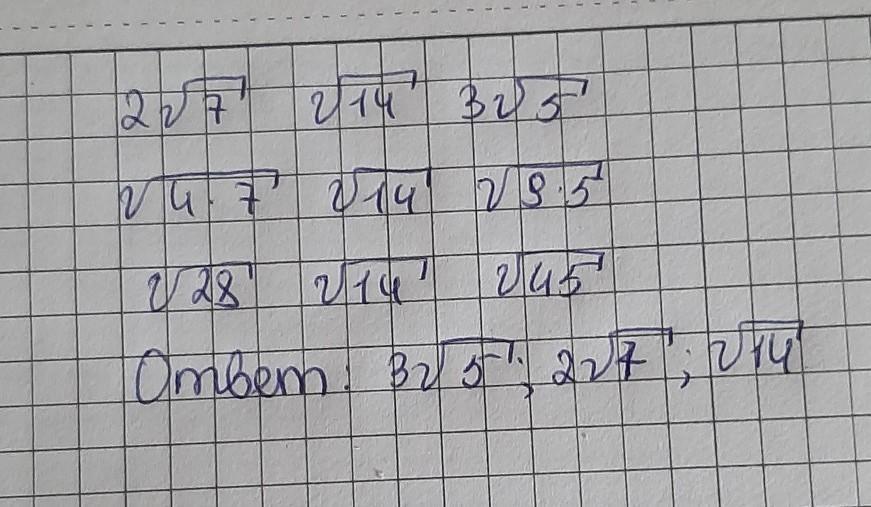 2√7 √14 3√5
√4·7 √14 √9·5
√28 √14 √45
Ответ: 3√5; 2√7; √14